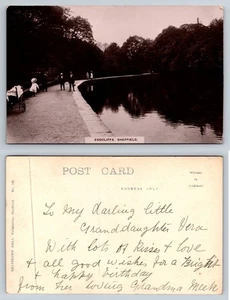 ENDCLIFFE, SHEFFIELD.
POST CARD
ADDRESS ONLY
To My darling little
Granddaughter Vera
With lots of Kisses & love
& all good wishes for a Bright
& happy birthday
From her loving Grandma